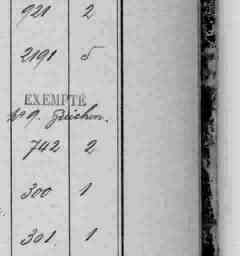 921 2
2191 5
EXEMPTÉ
No 9. Guichon.
742 2
300 1
301 1